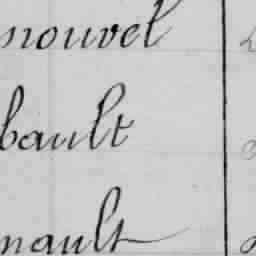 nouvel
bault
nault